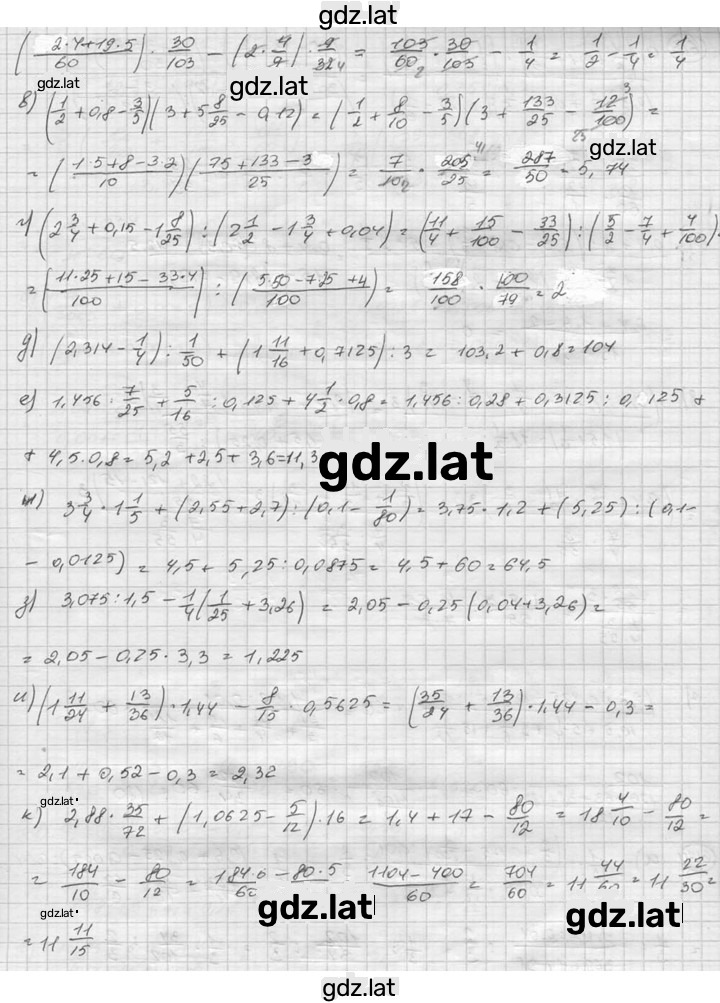 gdz.lat
((2·4+19·5)/60) · 30/103 − (2·4/9) · 9/32 = 103/60 · 30/103 − 1/4 = 1/2 − 1/4 = 1/4
gdz.lat
в) (1/2 + 0,8 − 3/5)(3 + 5 8/25 − 0,12) = (1/2 + 8/10 − 3/5)(3 + 133/25 − 12/100) =
gdz.lat
= ((1·5+8−3·2)/10)((75+133−3)/25) = 7/10 · 205/25 = 287/50 = 5,74
г) (2 3/4 + 0,15 − 1 8/25) : (2 1/2 − 1 3/4 + 0,04) = (11/4 + 15/100 − 33/25) : (5/2 − 7/4 + 4/100) =
= ((11·25+15−33·4)/100) : ((5·50−7·25+4)/100) = 158/100 · 100/79 = 2
д) (2,314 − 1/4) : 1/50 + (1 11/16 + 0,7125) : 3 = 103,2 + 0,8 = 104
е) 1,456 : 7/25 + 5/16 : 0,125 + 4 1/2 · 0,8 = 1,456 : 0,28 + 0,3125 : 0,125 +
+ 4,5·0,8 = 5,2 + 2,5 + 3,6 = 11,3
gdz.lat
ж) 3 3/4 · 1 1/5 + (2,55+2,7) : (0,1 − 1/80) = 3,75 · 1,2 + (5,25) : (0,1 −
− 0,0125) = 4,5 + 5,25 : 0,0875 = 4,5 + 60 = 64,5
з) 3,075 : 1,5 − 1/4(1/25 + 3,26) = 2,05 − 0,25(0,04+3,26) =
= 2,05 − 0,25 · 3,3 = 1,225
и) (1 11/24 + 13/36) · 1,44 − 8/15 · 0,5625 = (35/24 + 13/36) · 1,44 − 0,3 =
= 2,1 + 0,52 − 0,3 = 2,32
gdz.lat
к) 2,88 · 35/72 + (1,0625 − 5/12) · 16 = 1,4 + 17 − 80/12 = 18 4/10 − 80/12 =
= 184/10 − 80/12 = (184·6 − 80·5)/60 = (1104−400)/60 = 704/60 = 11 44/60 = 11 22/30 =
gdz.lat
gdz.lat
gdz.lat
= 11 11/15
gdz.lat